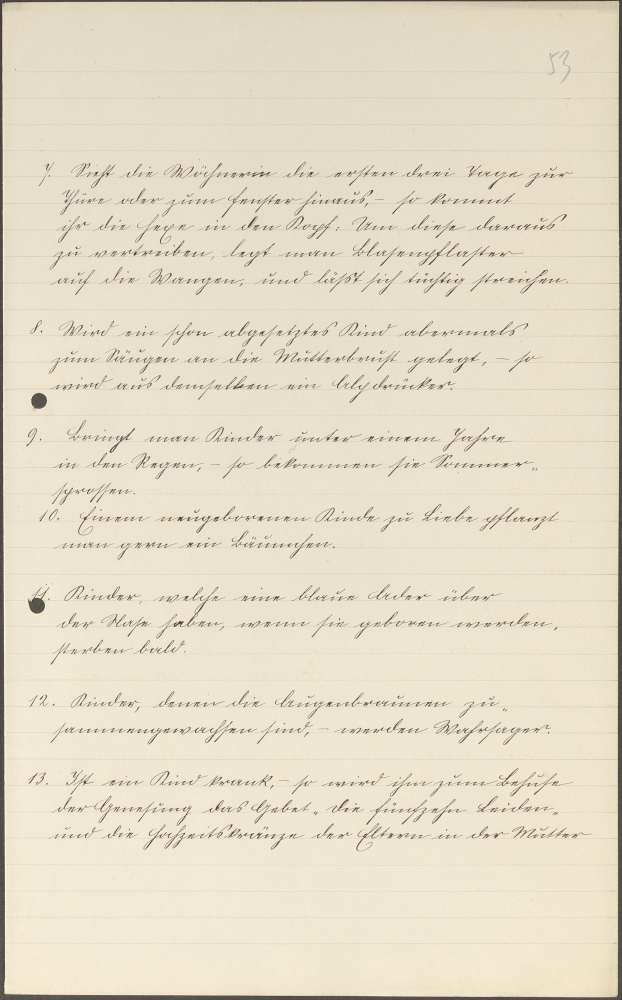 53
7. Sieht die Wöchnerin die ersten drei Tage zur
Thüre oder zum Fenster hinaus, – so kommt
ihr die Hexe in den Kopf. Um diese daraus
zu vertreiben, legt man Blasenpflaster
auf die Wangen, und läßt sich tüchtig streichen.
8. Wird ein schon abgesetztes Kind abermals
zum Säugen an die Mutterbrust gelegt, – so
wird aus demselben ein Alpdrücker.
9. Bringt man Kinder unter einem Jahre
in den Regen, – so bekommen sie Sommer-
sprossen.
10. Einem neugeborenen Kinde zu Liebe pflanzt
man gern ein Bäumchen.
11. Kinder, welche eine blaue Ader über
der Nase haben, wenn sie geboren werden,
sterben bald.
12. Kinder, denen die Augenbraunen zu-
sammengewachsen sind, – werden Wahrsager.
13. Ist ein Kind krank, – so wird ihm zum Behufe
der Genesung das Gebet „Die fünfzehn Leiden“
und die Hochzeitskränze der Eltern in der Mutter